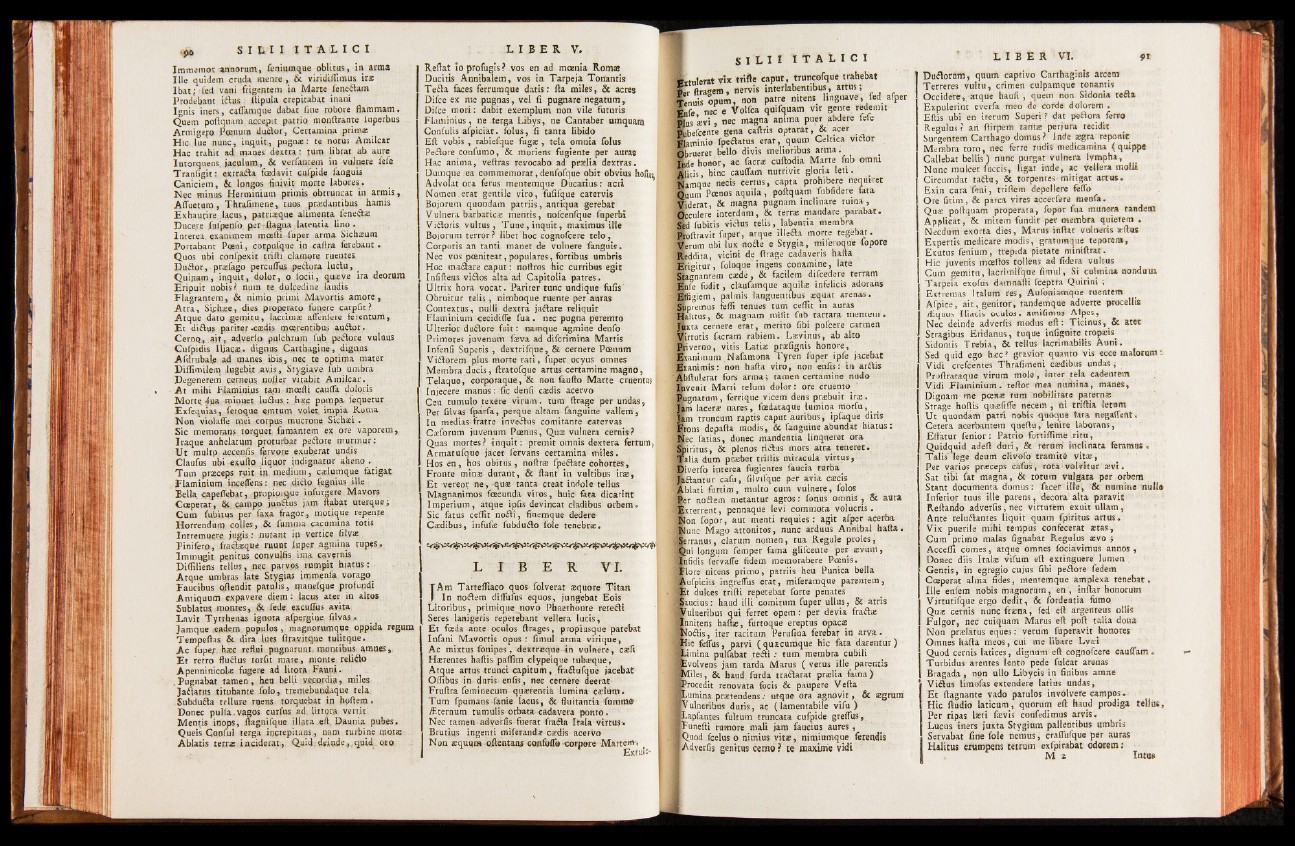 90 SILII ITALICI LIBER V.
Immemor annorum, seniumque oblitus, in arma
Ille quidem cruda mente, & viridissimus iræ
Ibat; sed vani frigentem in Marte senectam
Prodebant ictus: stipula crepitabat inani
Ignis iners, cassamque dabat sine robore flammam.
Quem postquam accepit patrio monstrante superbus
Armigero Pœnum ductor, Certamina primæ
Hic lue nunc, inquit, pugnæ: te notus Amilcar
Hac trahit ad manes dextra: tum librat ab aure
Intorquens jaculum, & versantem in vulnere sese
Transfigit: extracta fœdavit cuspide sanguis
Caniciem, & longos finivit morte labores.
Nec minus Herminium primis obtruncat in armis,
Assuetum, Thrasimene, tuos prædantibus hamis
Exhaurire lacus, patriæque alimenta senectæ
Ducere suspenso per stagna latentia lino.
Interea exanimem mœsti super arma Sichæum
Portabant Pœni, corpusque in castra ferebant.
Quos ubi conspexit tristi clamore ruentes
Ductor, præsago percussus pectora luctu,
Quinam, inquit, dolor, o socii, quæve ira deorum
Eripuit nobis? num te dulcedine laudis
Flagrantem, & nimio primi Mavortis amore,
Atra, Sichæe, dies properato funere carpsit?
Atque dato gemitu, lacrimæ assensere ferentum,
Et dictus pariter cædis mœrentibus auctor.
Cerno, ait, adverso pulchrum sub pectore vulnus
Cuspidis Iliacæ. dignus Carthagine, dignus
Asdrubale ad manes ibis, nec te optima mater
Dissimilem lugebit avis, Stygiave sub umbra
Degenerem cernens noster vitabit Amilcar.
At mihi Flaminius tam mœsti caussa doloris
Morte sua minuet luctus: hæc pompa sequetur
Exsequias, seroque emtum volet impia Roma
Non violasse mei corpus mucrone Sichæi.
Sic memorans torquet fumantem ex ore vaporem,
Iraque anhelatum proturbat pectore murmur:
Ut multo accensis fervore exuberat undis
Clausus ubi exusto liquor indignatur aheno.
Tum præceps ruit in medium, cælumque fatigat
Flaminium incessens: nec dicto segnius ille
Bella capessebat, propiorque insurgere Mavors
Cœperat, & campo junctus jam stabat uterque;
Cum subitus per saxa fragor, motique repente
Horrendum colles, & summa cacumina totis
Intremuere jugis: nutant in vertice silvæ
Pinifero, fractæque ruunt super agmina rupes.
Immugit penitus convulsis ima cavernis
Dissiliens tellus, nec parvos rumpit hiatus:
Atque umbras late Stygias immensa vorago
Faucibus ostendit patulis, manesque profundi
Antiquum expavere diem: lacus ater in altos
Sublatus montes, & sede excussus avita
Lavit Tyrrhenas ignota aspergine silvas.
Jamque eadem populos, magnorumque oppida regum
Tempestas & dira lues stravitque tulitque.
Ac super hæc reflui pugnarunt montibus amnes,
Et retro fluctus torsit mare, monte relicto
Apenninicolæ fugere ad litora Fauni.
Pugnabat tamen, heu belli vecordia, miles
Jactatus titubante solo, tremebundaque tela
Subducta tellure ruens torquebat in hostem.
Donec pulsa vagos cursus ad littora vertit
Mentis inops, stagnisque illata est Daunia pubes.
Queis Consul terga increpitans, nam turbine motæ
Ablatis terræ inciderat, Quid deinde, quid oro
Restat io profugis? vos en ad mœnia Romæ
Ducitis Annibalem, vos in Tarpeja Tonantis
Tecta faces ferrumque datis: sta miles, & acres
Disce ex me pugnas, vel si pugnare negatum,
Disce mori: dabit exemplum non vile futuris
Flaminius, ne terga Libys, ne Cantaber umquam
Consulis aspiciat. solus, si tanta libido
Est vobis, rabiesque fugæ, tela omnia solus
Pectore consumo, & moriens fugiente per auras
Hac anima, vestras revocabo ad prælia dextras.
Dumque ea commemorat, densosque obit obvius hostes,
Advolat ora ferus mentemque Ducarius: acri
Nomen erat gentile viro, fusisque catervis
Bojorum quondam patriis, antiqua gerebat
Vulnera barbaricæ mentis, noscensque superbi
Victoris vultus, Tune, inquit, maximus ille
Bojorum terror? libet hoc cognoscere telo,
Corporis an tanti manet de vulnere sanguis.
Nec vos pœniteat, populares, fortibus umbris
Hoc mactare caput: nostros hic curribus egit
Insistens victos alta ad Capitolia patres.
Ultrix hora vocat. Pariter tunc undique fusis
Obruitur telis, nimboque ruente per auras
Contextus, nulli dextra jactare reliquit
Flaminium cecidisse sua. nec pugna peremto
Ulterior ductore fuit: namque agmine denso
Primores juvenum sæva ad discrimina Martis
Infensi Superis, dextrisque, & cernere Pœnum
Victorem plus morte rati, super ocyus omnes
Membra ducis, stratosque artus certamine magno,
Telaque, corporaque, & non fausto Marte cruentas
Injecere manus: sic densi cædis acervo
Ceu tumulo texere virum. tum strage per undas,
Per silvas sparsa, perque altam sanguine vallem,
In medias fratre invectus comitante catervas
Cæsorum juvenum Pœnus, Quæ vulnera cernis?
Quas mortes? inquit: premit omnis dextera ferrum,
Armatusque jacet servans certamina miles.
Hos en, hos obitus, nostræ spectate cohortes,
Fronte minæ durant, & stant in vultibus iræ,
Et vereor ne, quæ tanta creat indole tellus
Magnanimos fœcunda viros, huic fata dicarint
Imperium, atque ipsis devincat cladibus orbem.
Sic fatus cessit nocti, finemque dedere
Cædibus, infusæ subducto sole tenebræ.
LIBER VI.
JAm Tartessiaco quos solverat æquore Titan
In noctem diffusus equos, jungebat Eois
Litoribus, primique novo Phaethonte retecti
Seres lanigeris repetebant vellera lucis,
Et fœda ante oculos strages, propiusque patebat
Insani Mavortis opus: simul arma virique,
Ac mixtus sonipes, dextræque in vulnere, cæsi
Hærentes hastis passim clypeique tubæque,
Atque artus trunci capitum, fractusque jacebat
Ossibus in duris ensis, nec cernere deerat
Frustra semineцum quærentia lumina cælum.
Tum spumans sanie lacus, & fluitantia summo
Æternum tumulis orbata cadavera ponto.
Nec tamen adversis fuerat fracta Itala virtus.
Brutius ingenti miserandæ cædis acervo
Non æquum ostentans confosso corpore Martem,
Extule-
SILII ITALICI LIBER VI. 91
Extulerat vix triste caput, truncosque trahebat
Per stragem, nervis interlabentibus, artus;
Tenuis opum, non patre nitens linguave, sed asper
Ense, nec e Volsca quisquam vir gente redemit
Plus ævi, nec magna anima puer abdere sese
Pubescente gena castris optarat, & acer
Flaminio spectatus erat, quum Celtica victor
Obrueret bello divis melioribus arma.
Inde honor, ac sacræ custodia Marte sub omni
Alitis, hinc caussam nutrivit gloria leti.
Namque necis certus, capta prohibere nequiret
Quum Pœnos aquila, postquam subsidere fata
Viderat, & magna pugnam inclinare ruina,
Occulere interdum, & terræ mandare parabat.
Sed subitis victus telis, labentia membra
Prostravit super, atque illecta morte tegebat.
Verum ubi lux nocte e Stygia, miseroque sopore
Reddita, vicini de strage cadaveris hasta
Erigitur, soloque ingens conamine, late
Stagnantem cæde, & facilem discedere terram
Ense fodit, clausamque aquilæ infelicis adorans
Effigiem, palmis languentibus æquat arenas.
Supremus fessi tenues tum cessit in auras
Halitus, & magnam misit sub tartara mentem.
Juxta cernere erat, merito sibi poscere carmen
Virtutis sacram rabiem. Lævinus, ab alto
Priverno, vitis Latiæ præsignis honore,
Exanimum Nasamona Tyren super ipse jacebat
Exanimis: non hasta viro, non ensis: in arctis
Abstulerat fors arma; tamen certamine nudo
Invenit Marti telum dolor: ore cruento
Pugnatum, ferrique vicem dens præbuit iræ.
Jam laceræ nares, fœdataque lumina morsu,
Jam truncum raptis caput auribus, ipsaque diris
Frons depasta modis, & sanguine abundat hiatus:
Nec satias, donec mandentia linqueret ora
Spiritus, & plenos rictus mors atra teneret.
Talia dum præbet tristis miracula virtus,
Diverso interea fugientes saucia turba
Jactantur casu, silvisque per avia cæcis
Ablati furtim, multo cum vulnere, solos
Per noctem metantur agros: sonus omnis, & aura
Exterrent, pennaque levi commota volucris.
Non sopor, aut menti requies: agit asper acerba
Nunc Mago attonitos, nunc arduus Annibal hasta.
Serranus, clarum nomen, tua Regule proles,
Qui longum semper fama gliscente per ævum,
Infidis servasse fidem memorabere Pœnis.
Flore nitens primo, patriis heu Punica bella
Auspiciis ingressus erat, miseramque parentem,
Et dulces tristi repetebat sorte penates
Saucius: haud illi comitum super ullus, & atris
Vulneribus qui ferret opem: per devia fractæ
Innitens hastæ, furtoque ereptus opacæ
Noctis, iter tacitum Perusina ferebat in arva.
Hic fessus, parvi (quæcumque hic fata darentur)
Limina pulsabat tecti: tum membra cubili
Evolvens jam tarda Marus (vetus ille parentis
Miles, & haud surda tractarat prælia fama)
Procedit renovata focis & paupere Vesta
Lumina prætendens: utque ora agnovit, & ægrum
Vulneribus duris, ac (lamentabile visu)
Lapsantes fultum truncata cuspide gressus,
Funesti rumore mali jam saucius aures,
Quod scelus o nimius vitæ, nimiumque ferendis
Adversis genitus cerno? te maxime vidi
Ductorum, quum captivo Carthaginis arcem
Terreres vultu, crimen culpamque tonantis
Occidere, atque hausi, quem non Sidonia tecta
Expulerint eversa meo de corde dolorem.
Estis ubi en iterum Superi? dat pectora ferro
Regulus? an stirpem tantæ perjura recidit
Surgentem Carthago domus? Inde ægra reponit
Membra toro, nec ferre rudis medicamina (quippe
Callebat bellis) nunc purgat vulnera lympha,
Nunc mulcet succis, ligat inde, ac vellera molli
Circumdat tactu, & torpentes mitigat artus.
Exin cura seni, tristem depellere fesso
Ore sitim, & parca vires accersere mensa.
Quæ postquam properata, sopor sua munera tandem
Applicat, & mitem fundit per membra quietem.
Necdum exorta dies, Marus instat vulneris æstus
Expertis medicare modis, gratumque teporem,
Exutus senium, trepida pietate ministrat.
Hic juvenis mœstos tollens ad sidera vultus
Cum gemitu, lacrimisque simul, Si culmina nondum
Tarpeia exosus damnasti sceptra Quirini;
Extremas Italum res, Ausoniamque ruentem
Aspice, ait, genitor, tandemque adverte procellis
Æquos Iliacis oculos. amisimus Alpes,
Nec deinde adversis modus est: Ticinus, & ater
Stragibus Eridanus, tuque insignite tropæis
Sidoniis Trebia, & tellus lacrimabilis Auni.
Sed quid ego hæc? gravior quanto vis ecce malorum:
Vidi crescentes Thrasimeni cædibus undas,
Prostrataque virum mole, inter tela cadentem
Vidi Flaminium. testor mea numina, manes,
Dignam me pœnæ tum nobilitate paternæ
Strage hostis quæsisse necem, ni tristia letum
Ut quondam patri nobis quoque fata negassent.
Cetera acerbantem questu, lenire laborans,
Effatur senior: Patrio fortissime ritu,
Quidquid adest duri, & rerum inclinata feramus.
Talis lege deum clivoso tramite vitæ,
Per varios præceps casus, rota volvitur ævi.
Sat tibi sat magna, & totum vulgata per orbem
Stant documenta domus: sacer ille, & numine nullo
Inferior tuus ille parens, decora alta paravit
Restando adversis, nec virtutem exuit ullam,
Ante reluctantes liquit quam spiritus artus.
Vix puerile mihi tempus confecerat ætas,
Cum primo malas signabat Regulus ævo;
Accessi comes, atque omnes sociavimus annos,
Donec diis Italæ visum est extinguere lumen
Gentis, in egregio cujus sibi pectore sedem
Cœperat alma fides, mentemque amplexa tenebat.
Ille ensem nobis magnorum, en, instar honorum
Virtutisque ergo dedit, & sordentia fumo
Quæ cernis nunc fræna, sed est argenteus ollis
Fulgor, nec cuiquam Marus est post talia dona
Non prælatus eques: verum superavit honores
Omnes hasta meos, cui me libare Lyæi
Quod cernis latices, dignum est cognoscere caussam.
Turbidus arentes lento pede sulcat arenas
Bragada, non ullo Libycis in finibus amne
Victus limosas extendere latius undas,
Et stagnante vado patulos involvere campos.
Hic studio laticum, quorum est haud prodiga tellus,
Per ripas læti sævis consedimus arvis.
Lucus iners juxta Stygium pallentibus umbris
Servabat sine sole nemus, crassusque per auras
Halitus erumpens tetrum exspirabat odorem:
M 2 Intus